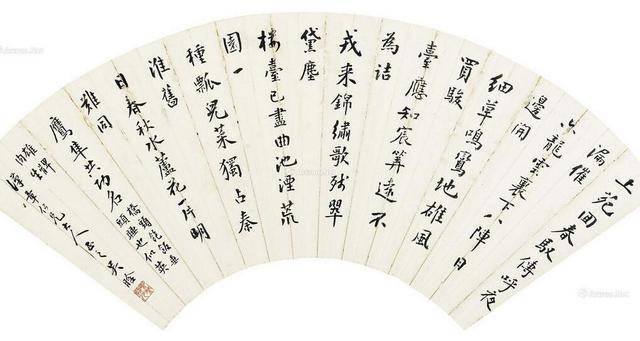 上苑回春馭傳呼夜
漏催
六龍雲裏下八陣日
邊開
細草鳴鸞地雄風
買駿
臺應知宸筭遠不
為詰
戎來錦繡歌殘翠
黛塵
樓臺已盡曲池湮荒
園一
種瓢兒菜獨占秦
淮舊
日春秋水蘆花一片明
難同
鷹隼共功名
飽飯垂
頭睡也似英
雄髀
肉生
仁兄大人正之